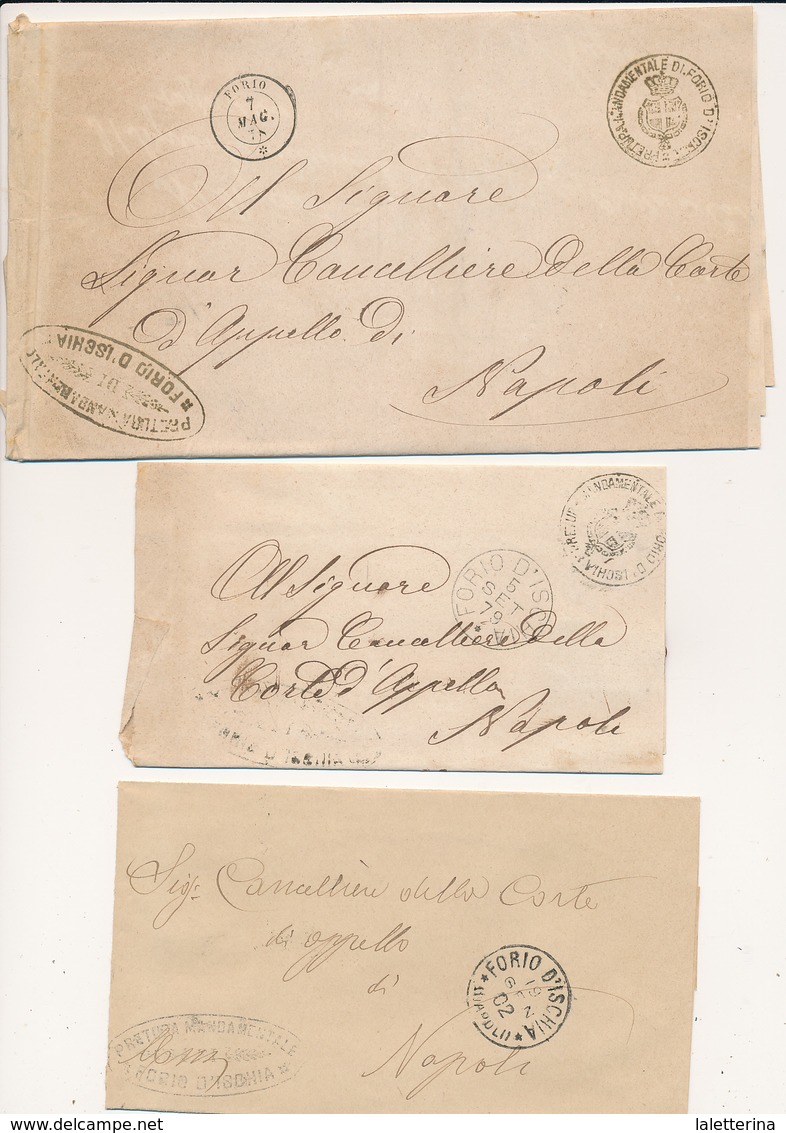 FORIO
7
MAG.
78
PRETURA MANDAMENTALE DI FORIO D'ISCHIA
Al Signore
Signor Cancelliere della Corte
d'Appello di
Napoli
PRETURA MANDAMENTALE
DI
FORIO D'ISCHIA
PRETURA MANDAMENTALE DI FORIO D'ISCHIA
FORIO D'ISCHIA
5
SET
79
Al Signore
Signor Cancelliere della
Corte d'Appello
Napoli
D'ISCHIA
Sigr Cancelliere della Corte
di appello
di
Napoli
FORIO D'ISCHIA
19
GEN
02
(NAPOLI)
PRETURA MANDAMENTALE
FORIO D'ISCHIA
DELCAMPE.NET
laletterina